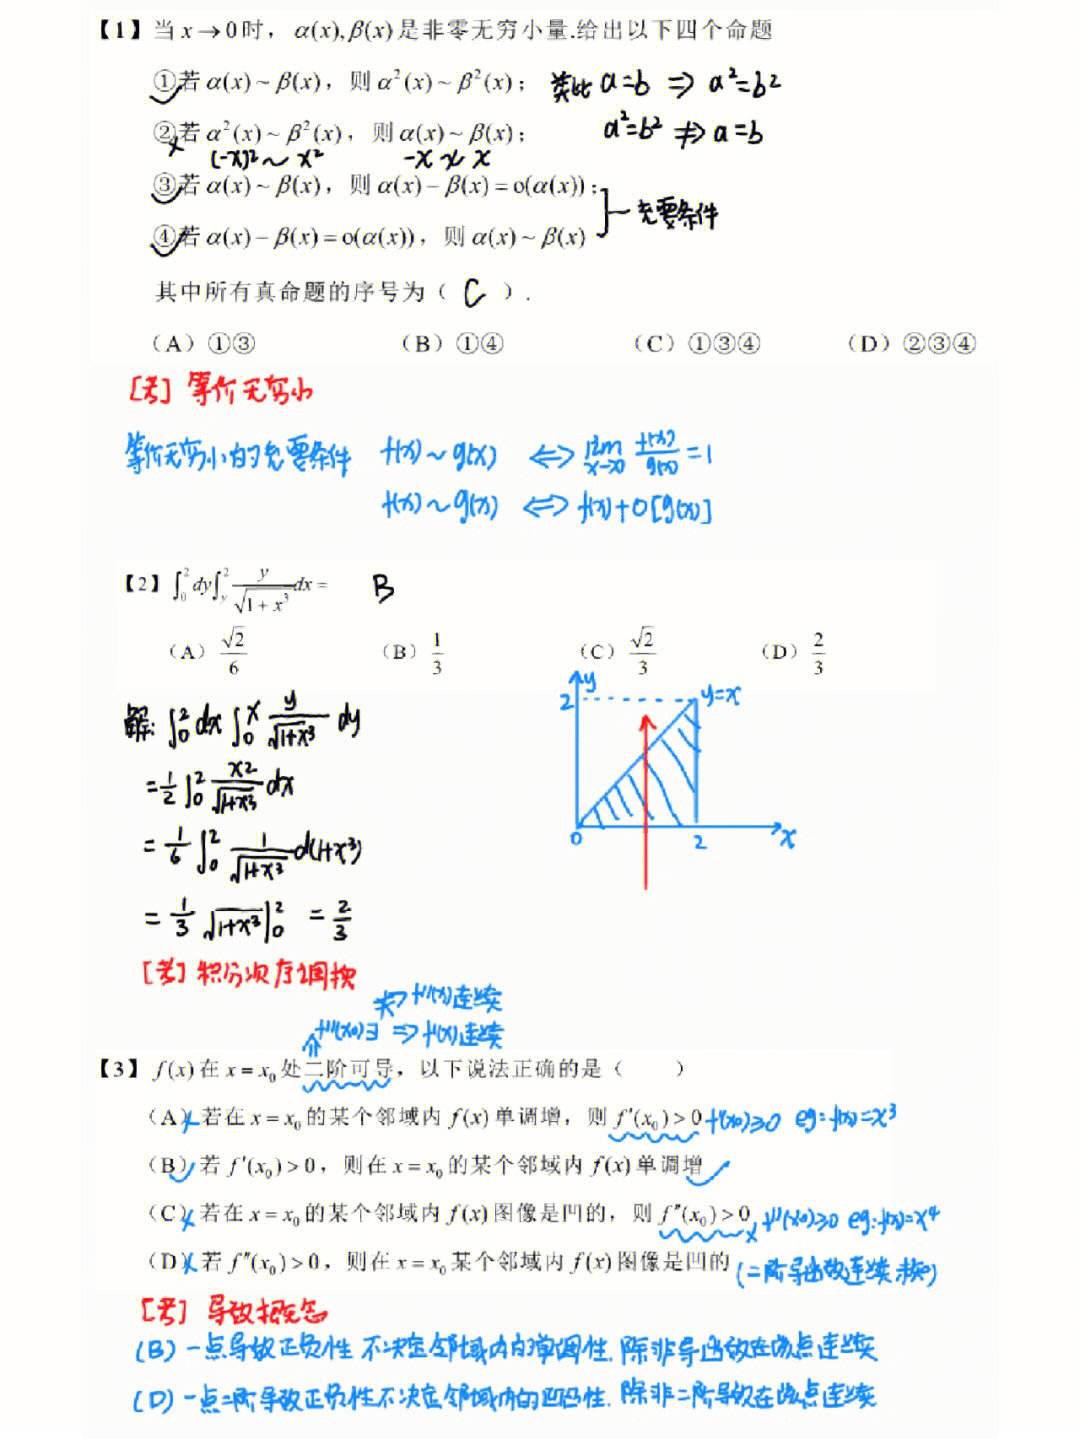 【1】当 x→0 时，α(x),β(x) 是非零无穷小量.给出以下四个命题
①若 α(x)~β(x)，则 α²(x)~β²(x)； 类比 a=b ⇒ a²=b²
②若 α²(x)~β²(x)，则 α(x)~β(x)； a²=b² ⇏ a=b
(-x)²~x² -x≁x
③若 α(x)~β(x)，则 α(x)-β(x)=o(α(x))；
④若 α(x)-β(x)=o(α(x))，则 α(x)~β(x) 充要条件
其中所有真命题的序号为（ C ）.
（A）①③ （B）①④ （C）①③④ （D）②③④
[考] 等价无穷小
等价无穷小的充要条件 f(x)~g(x) ⇔ lim x→x₀ f(x)/g(x)=1
f(x)~g(x) ⇔ f(x)+o[g(x)]
【2】∫₀² dy∫_y² y/√(1+x³) dx= B
（A）√2/6 （B）1/3 （C）√2/3 （D）2/3
解: ∫₀² dx ∫₀ˣ y/√(1+x³) dy
=1/2 ∫₀² x²/√(1+x³) dx
=1/6 ∫₀² 1/√(1+x³) d(1+x³)
=1/3 √(1+x³)|₀² =2/3
y
2
y=x
0 2 x
[考] 积分次序调换
⇏ f''(x)连续
f''(x₀)∃ ⇒ f'(x)连续
【3】f(x) 在 x=x₀ 处二阶可导，以下说法正确的是（ ）
（A）若在 x=x₀ 的某个邻域内 f(x) 单调增，则 f'(x₀)>0 f'(x₀)≥0 eg: f(x)=x³
（B）若 f'(x₀)>0，则在 x=x₀ 的某个邻域内 f(x) 单调增
（C）若在 x=x₀ 的某个邻域内 f(x) 图像是凹的，则 f''(x₀)>0 f''(x₀)≥0 eg: f(x)=x⁴
（D）若 f''(x₀)>0，则在 x=x₀ 某个邻域内 f(x) 图像是凹的 (二阶导函数连续才可)
[考] 导数概念
(B) 一点导数正负性不决定邻域内的单调性. 除非导函数在该点连续
(D) 一点二阶导数正负性不决定邻域内的凹凸性. 除非二阶导数在该点连续